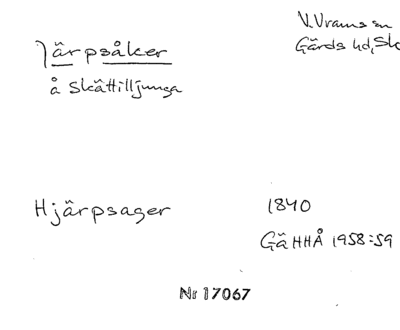 Järpsåker
V. Vrams sn
Gärds hd, Sk
å Skättilljunga
Hjärpsager
1840
GäHHÅ 1958:59
Nr 17067